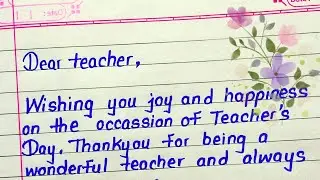 Dear teacher,
Wishing you joy and happiness
on the occassion of Teacher's
Day. Thankyou for being a
wonderful teacher and always